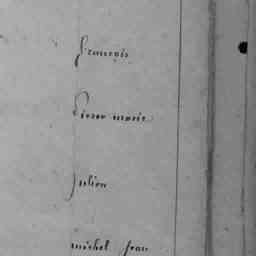 françois
Pierre marie
julien
michel jean